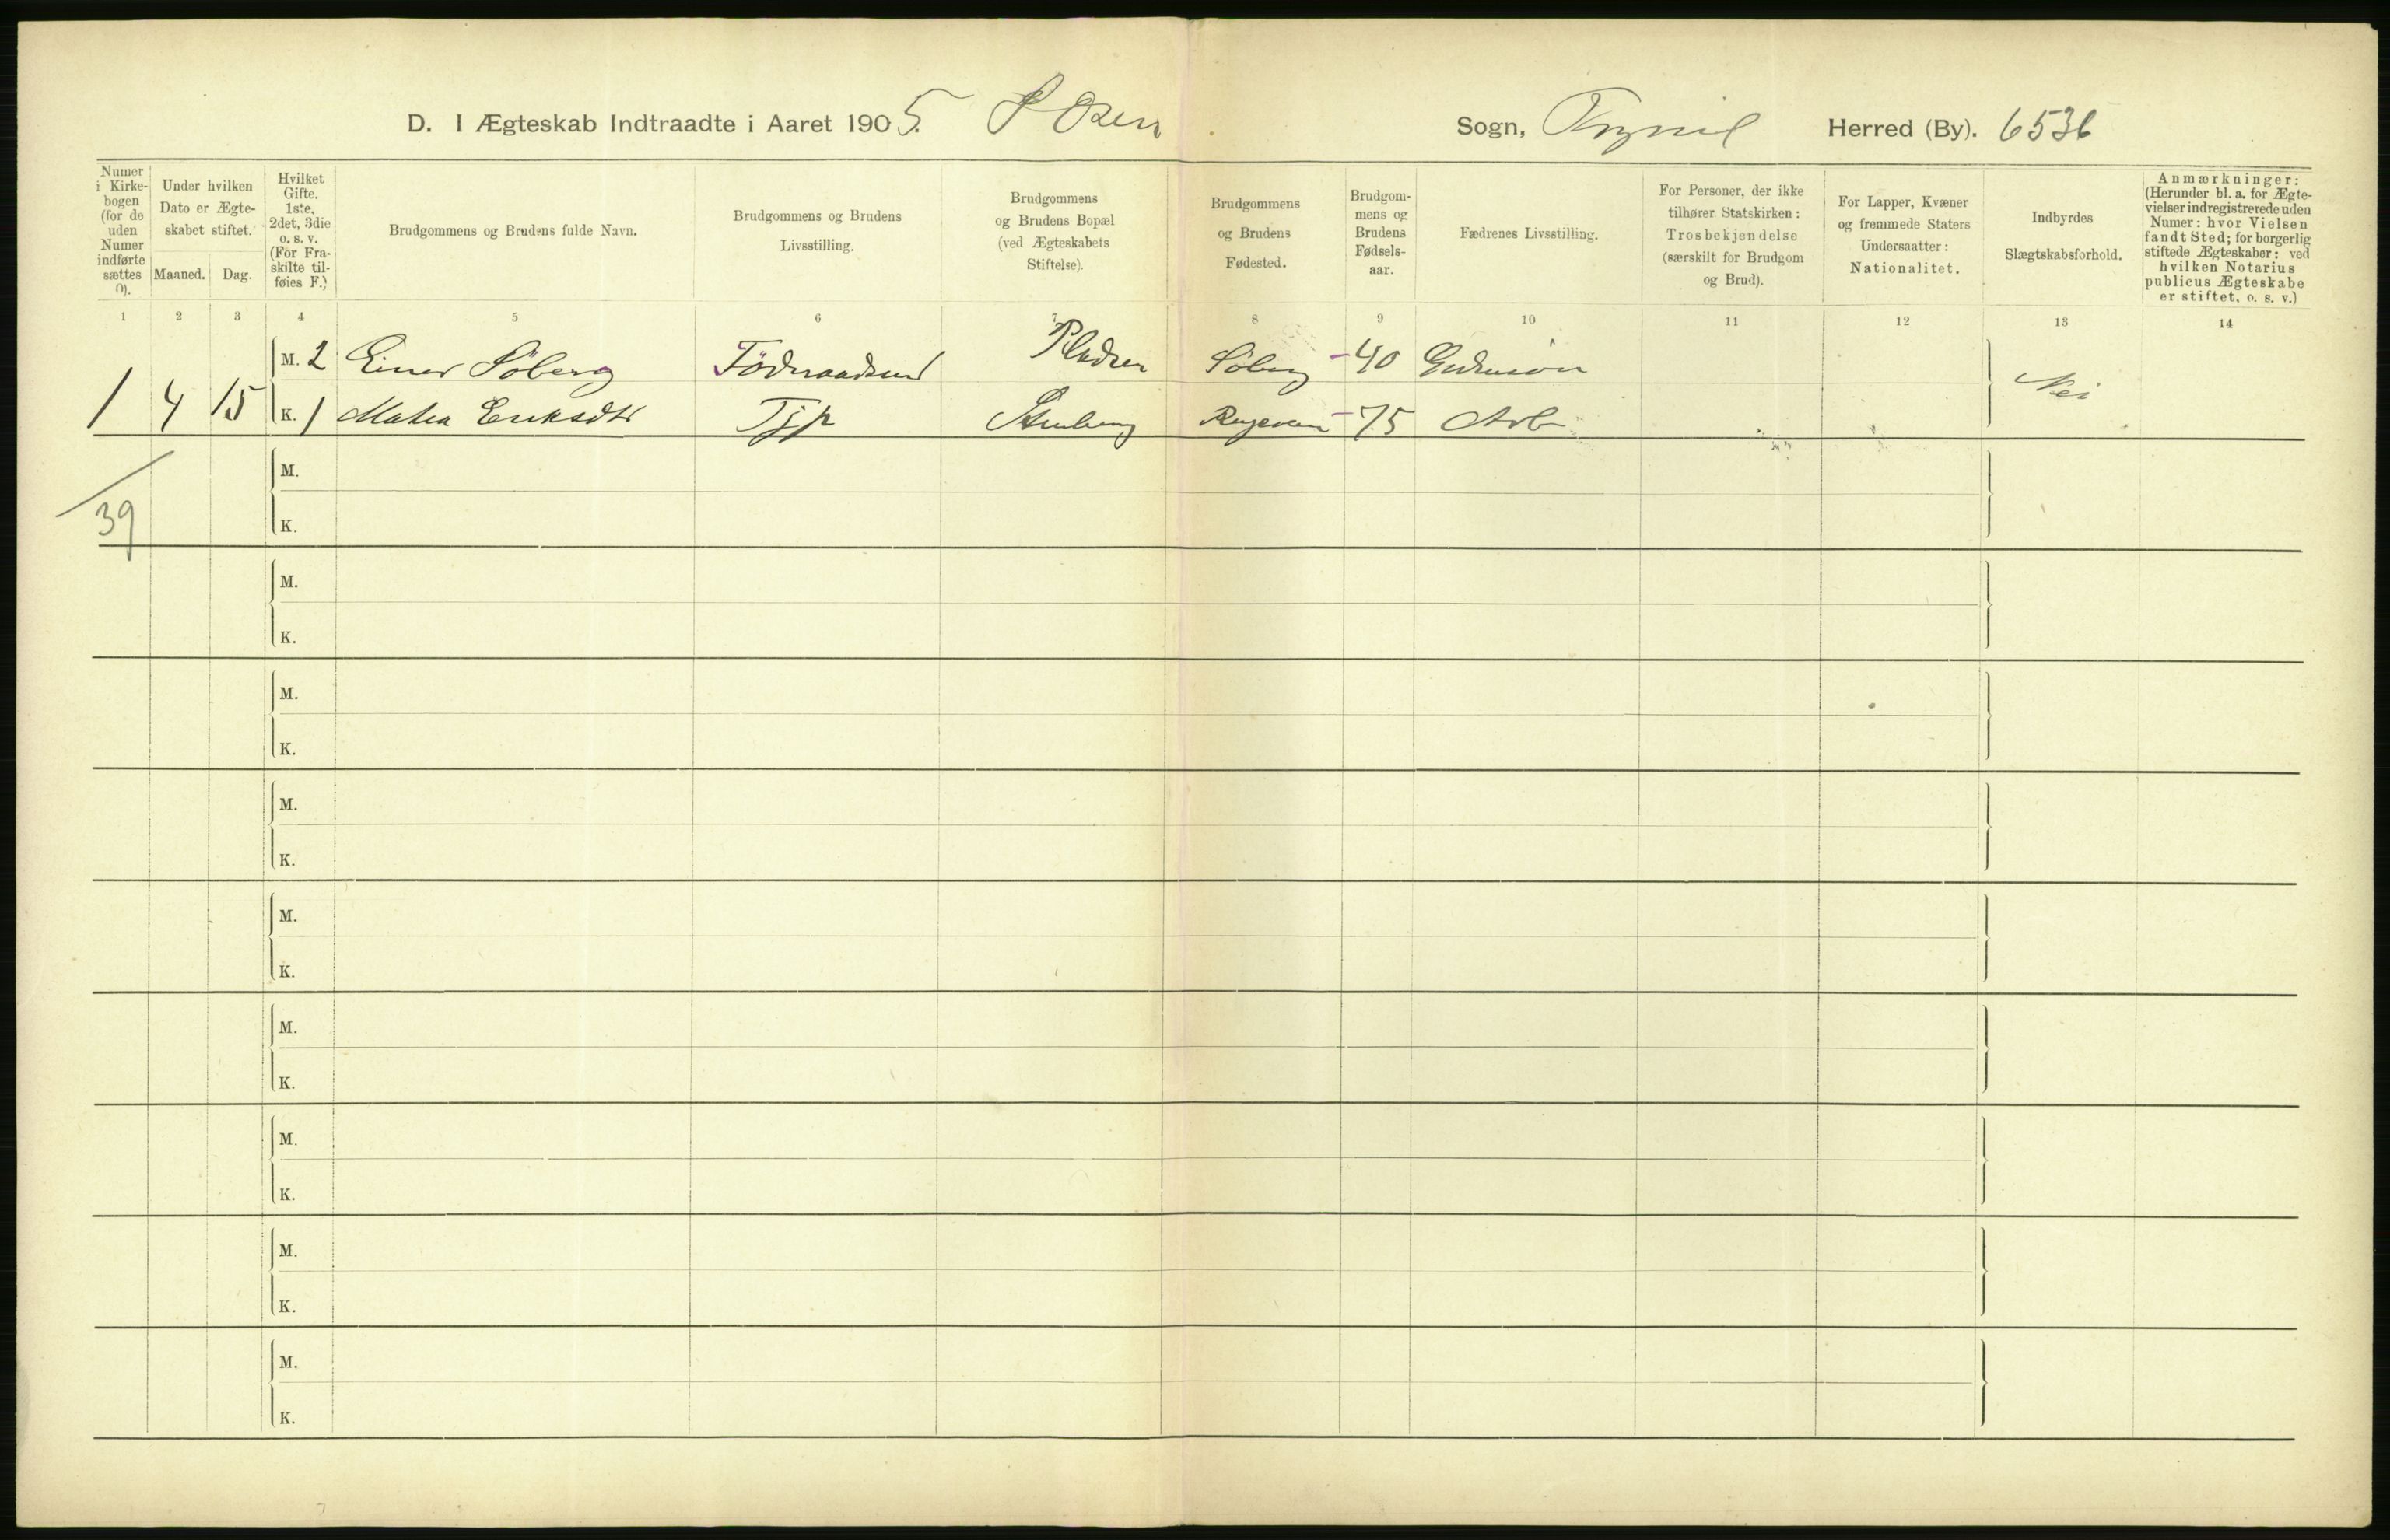 D. I Ægteskab Indtraadte i Aaret 1905. S Osen Sogn, Trysil Herred (By). 6536
Numer i Kirke-bogen (for de uden Numer indførte sættes 0).
Under hvilken Dato er Ægte-skabet stiftet.
Maaned. Dag.
Hvilket Gifte. 1ste, 2det, 3die o. s. v. (For Fra-skilte til-føies F.)
Brudgommens og Brudens fulde Navn.
Brudgommens og Brudens Livsstilling.
Brudgommens og Brudens Bopæl (ved Ægteskabets Stiftelse).
Brudgommens og Brudens Fødested.
Brudgom-mens og Brudens Fødsels-aar.
Fædrenes Livsstilling.
For Personer, der ikke tilhører Statskirken: Trosbekjendelse (særskilt for Brudgom og Brud).
For Lapper, Kvæner og fremmede Staters Undersaatter: Nationalitet.
Indbyrdes Slægtskabsforhold.
Anmærkninger: (Herunder bl. a. for Ægte-vielser indregistrerede uden Numer: hvor Vielsen fandt Sted; for borgerlig stiftede Ægteskaber: ved hvilken Notarius publicus Ægteskabe er stiftet, o. s. v.)
1 2 3 4 5 6 7 8 9 10 11 12 13 14
M. 2 Einar Söberg Födraadsmd Pladsen Söberg 40
1 4 15 K. 1 Mathea Eriksdtr Tjp 75 Arb Nei
M.
39 K.
M.
K.
M.
K.
M.
K.
M.
K.
M.
K.
M.
K.
M.
K.
M.
K.